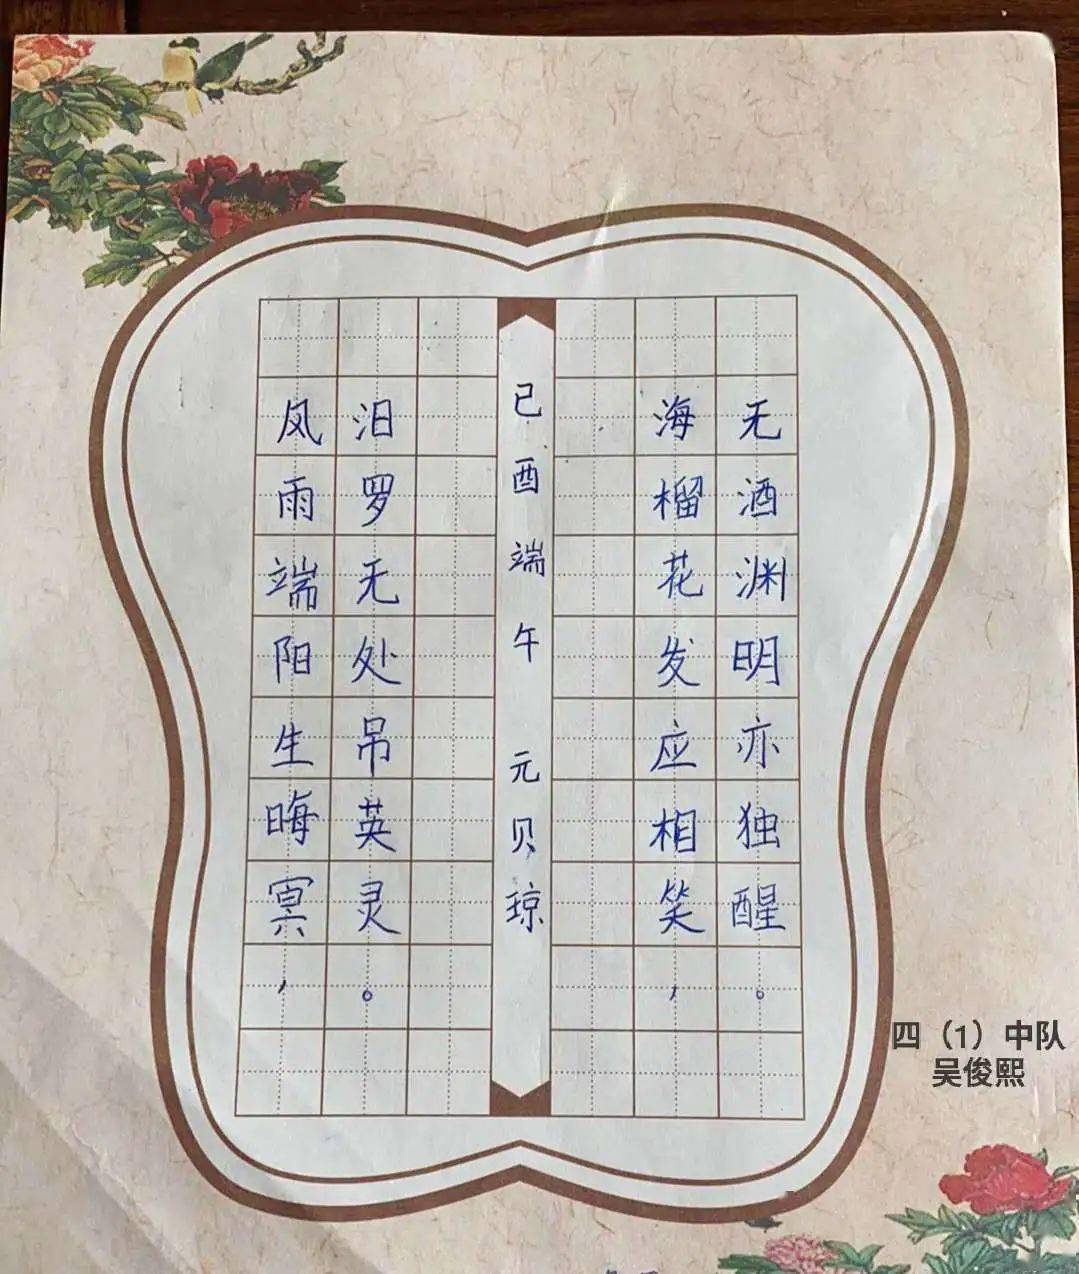 风雨端阳生晦冥，
汨罗无处吊英灵。
己酉端午 元贝琼
海榴花发应相笑，
无酒渊明亦独醒。
四（1）中队
吴俊熙